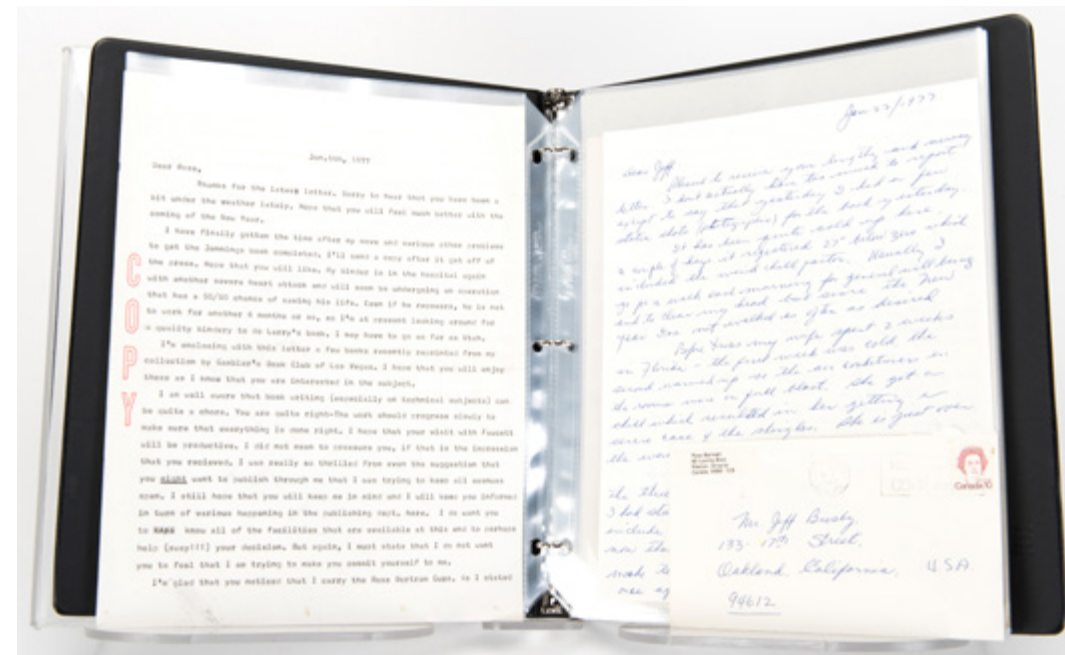 1977
Dear Ross,
Thanks for the latest letter. Sorry to hear that you have been a
bit under the weather lately. Hope that you will feel much better with the
coming of the New Year.
I have finally gotten the time after my move and various other problems
to get the Jennings book completed. I'll send a copy after it gets off of
the press. Hope that you will like. My binder is in the hospital again
with another severe heart attack and will soon be undergoing an operation
that has a 50/50 chance of saving his life. Even if he recovers, he is not
to work for another 6 months or so, so I'm at present looking around for
a quality bindery to do Larry's book. I may have to go as far as Utah.
I'm enclosing with this letter a few books recently reprinted from my
collection by Gambler's Book Club of Las Vegas. I hope that you will enjoy
these as I know that you are interested in the subject.
I am well aware that book writing (especially on technical subjects) can
be quite a chore. You are quite right-The work should progress slowly to
make sure that everything is done right. I hope that your visit with Faucett
will be productive. I did not mean to pressure you, if that is the impression
that you recieved. I was really so thrilled from even the suggestion that
you might want to publish through me that I was trying to keep all avenues
open. I still hope that you will keep me in mind and I will keep you informed
in turn of various happening in the publishing dept. here. I do want you
to know all of the facilities that are available at this end to perhaps
help (sway!!!) your decision. But again, I must state that I do not want
you to feel that I am trying to make you commit yourself to me.
I'm glad that you noticed that I carry the Ross Bertram Cups. As I stated
COPY
Jan 22/1977
Dear Jeff
Pleased to receive your lengthy and newsy
letter. I don't actually have too much to report
except to say that yesterday I had a few
stills shots (photographic) for the book yesterday.
It has been quite cold up here,
a couple of days it registered 27° below zero which
included the wind chill factor. Usually I
go for a walk each morning for general well being
and to clear my head but since the New
Year I've not walked as often as desired
Before Xmas my wife spent 2 weeks
in Florida - the first week was cold the
second warmed up so the air conditioners in
the rooms were on full blast. She got a
chill which resulted in her getting a
severe case of the shingles. She is just over
the worst
I had
include
now the
made to
Ross Bertram
Canada
Canada 10
Mr. Jeff Busby,
133 - 17th Street,
Oakland, California, U.S.A
94612